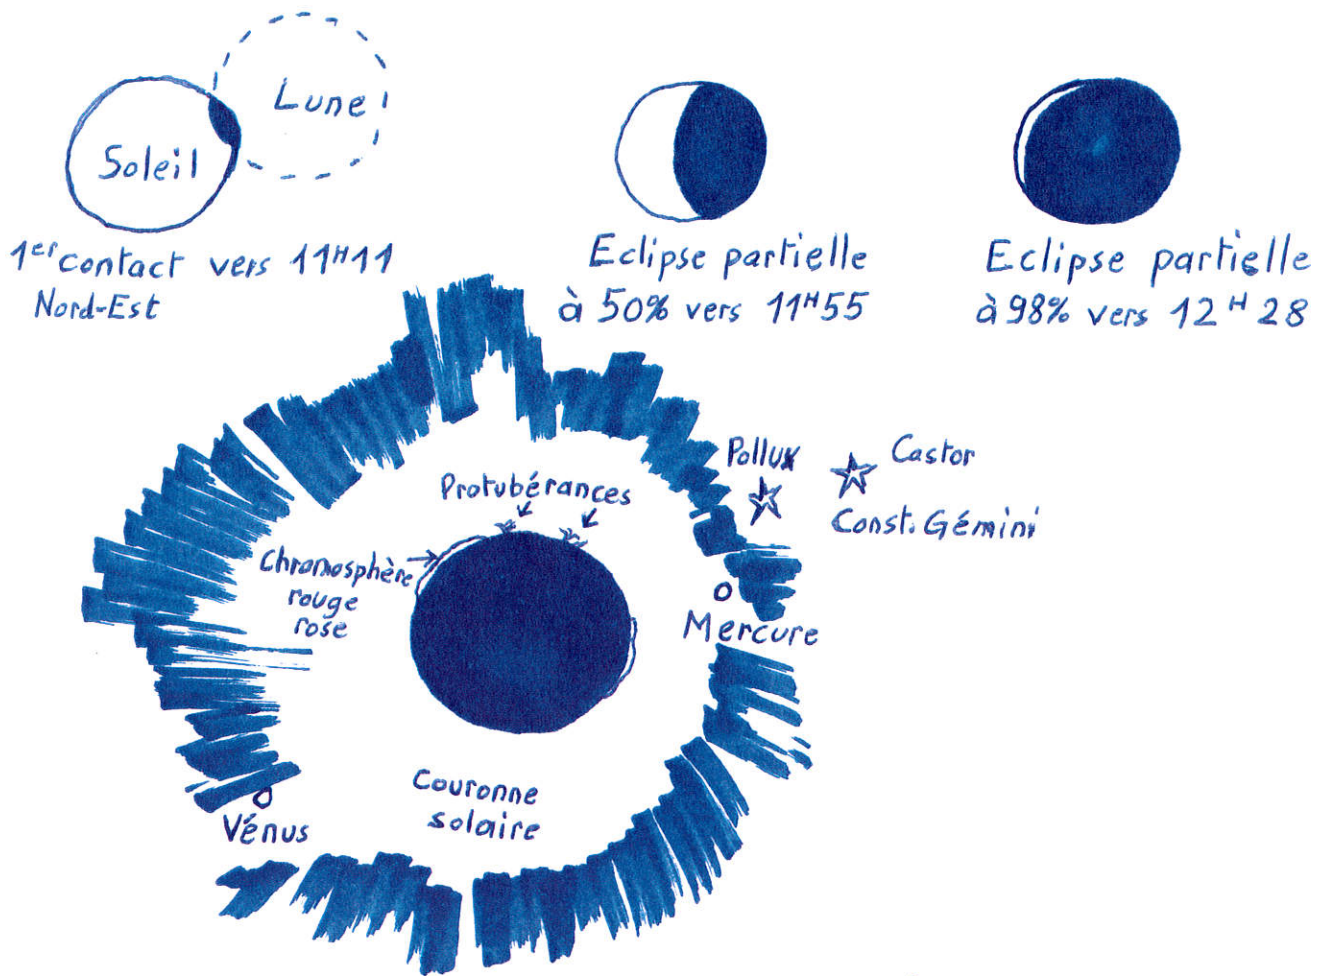 Lune
Soleil
1er contact vers 11H11
Nord-Est
Eclipse partielle
à 50% vers 11H55
Eclipse partielle
à 98% vers 12H28
Pollux
Castor
Const. Gémini
Protubérances
Chromosphère
rouge
rose
Mercure
Couronne
solaire
Vénus